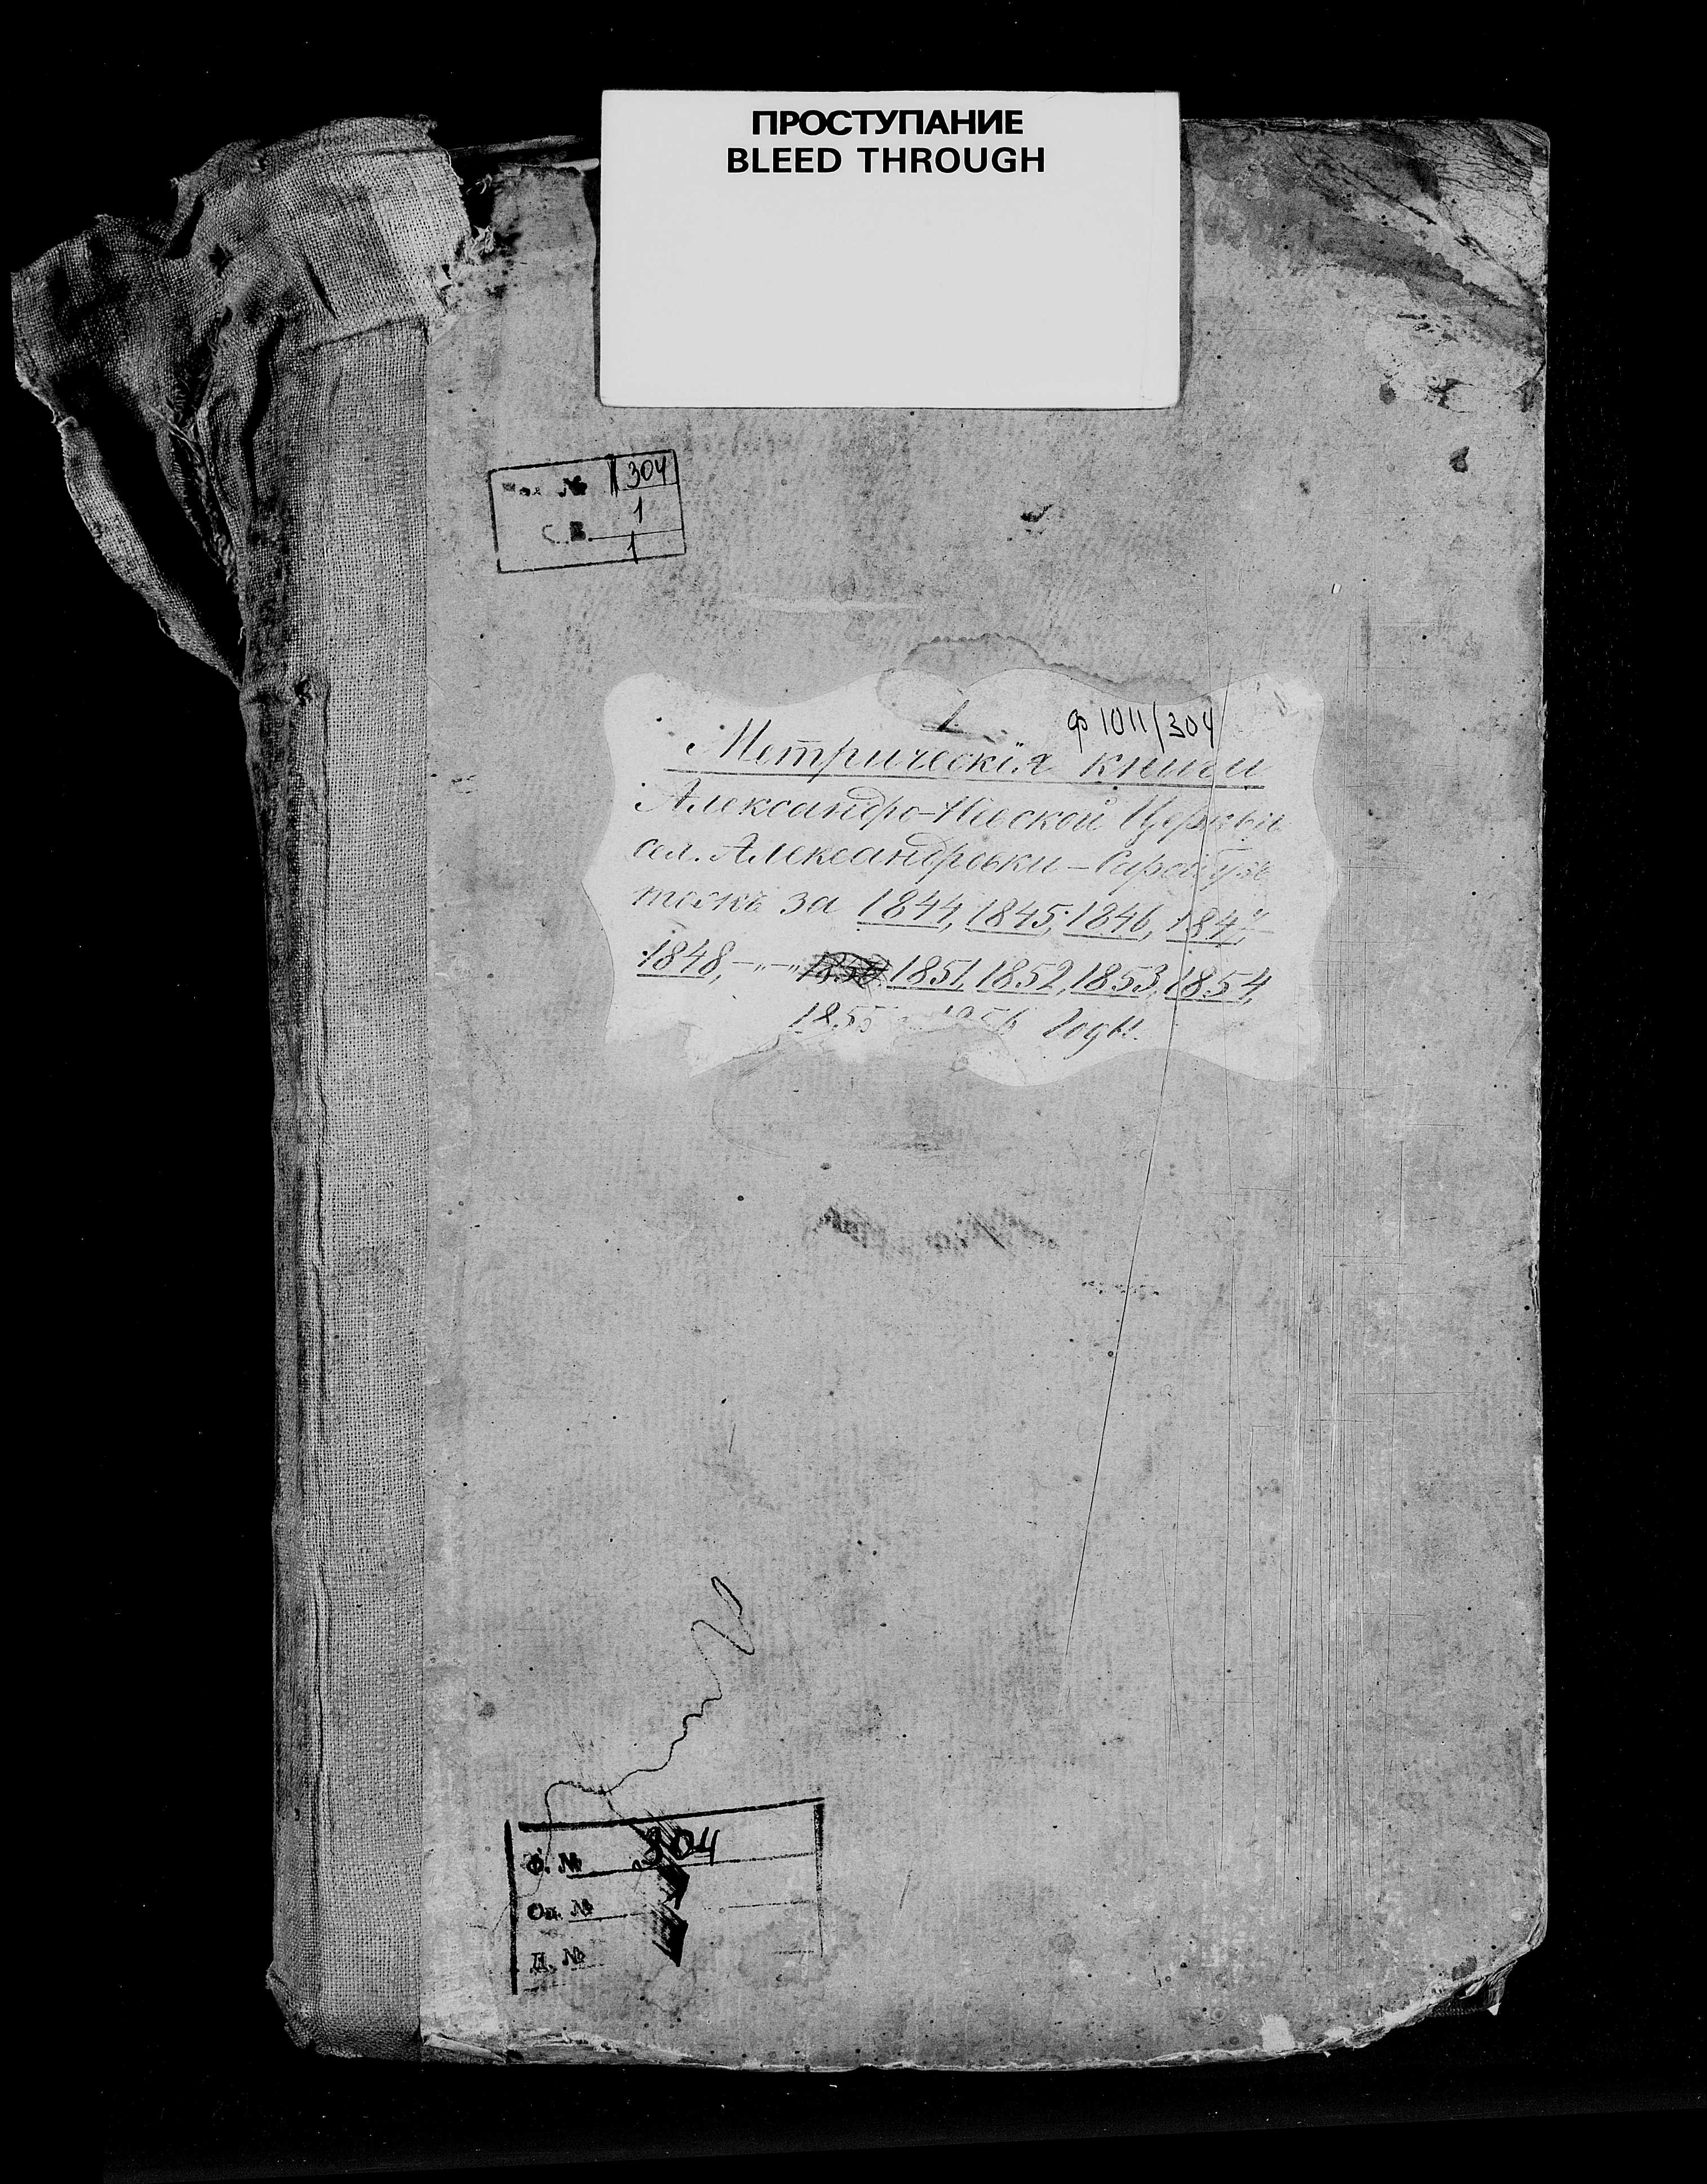 ПРОСТУПАНИЕ
BLEED THROUGH
№ 304
1
С.В.
1
1
ф 1011/304
Метрическія книги
Александро-Невской Церкви
сел. Александровки –
за 1844, 1845, 1846, 1847,
1848, –„–„ 1850 1851, 1852, 1853, 1854,
1855 1856 годы.
Ф. № 304
Оп. №
Д. №